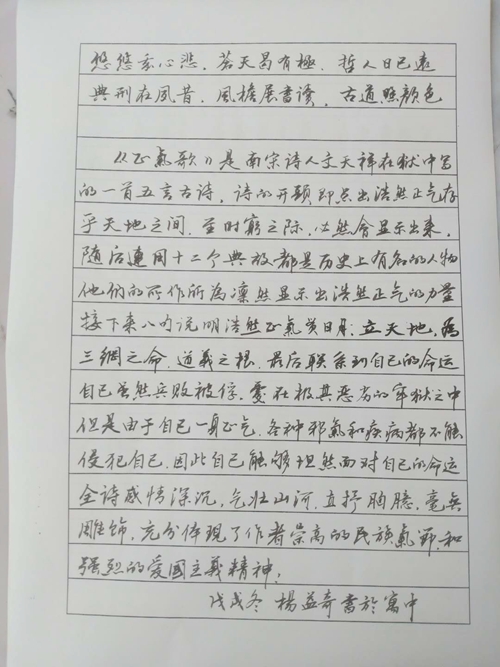 悠悠我心悲，苍天曷有極，哲人日已遠
典刑在夙昔，風檐展書讀，古道照顏色
《正氣歌》是南宋诗人文天祥在狱中写
的一首五言古诗，诗的开頭即点出浩然正气存
乎天地之间，至时窮之际，必然會显示出来，
随后連用十二个典故都是历史上有名的人物
他们的所作所為凛然显示出浩然正气的力量
接下来八句说明浩然正氣贯日月，立天地，為
三綱之命，道義之根，最后联系到自己的命运
自己虽然兵败被俘，處在极其恶劣的牢狱之中
但是由于自己一身正气，各种邪氣和疾病都不能
侵犯自己，因此自己能够坦然面对自己的命运
全诗感情深沉，气壮山河，直抒胸臆，毫無
雕饰，充分体現了作者崇高的民族氣节，和
强烈的爱國主義精神，
戊戌冬 楊益奇書於寓中